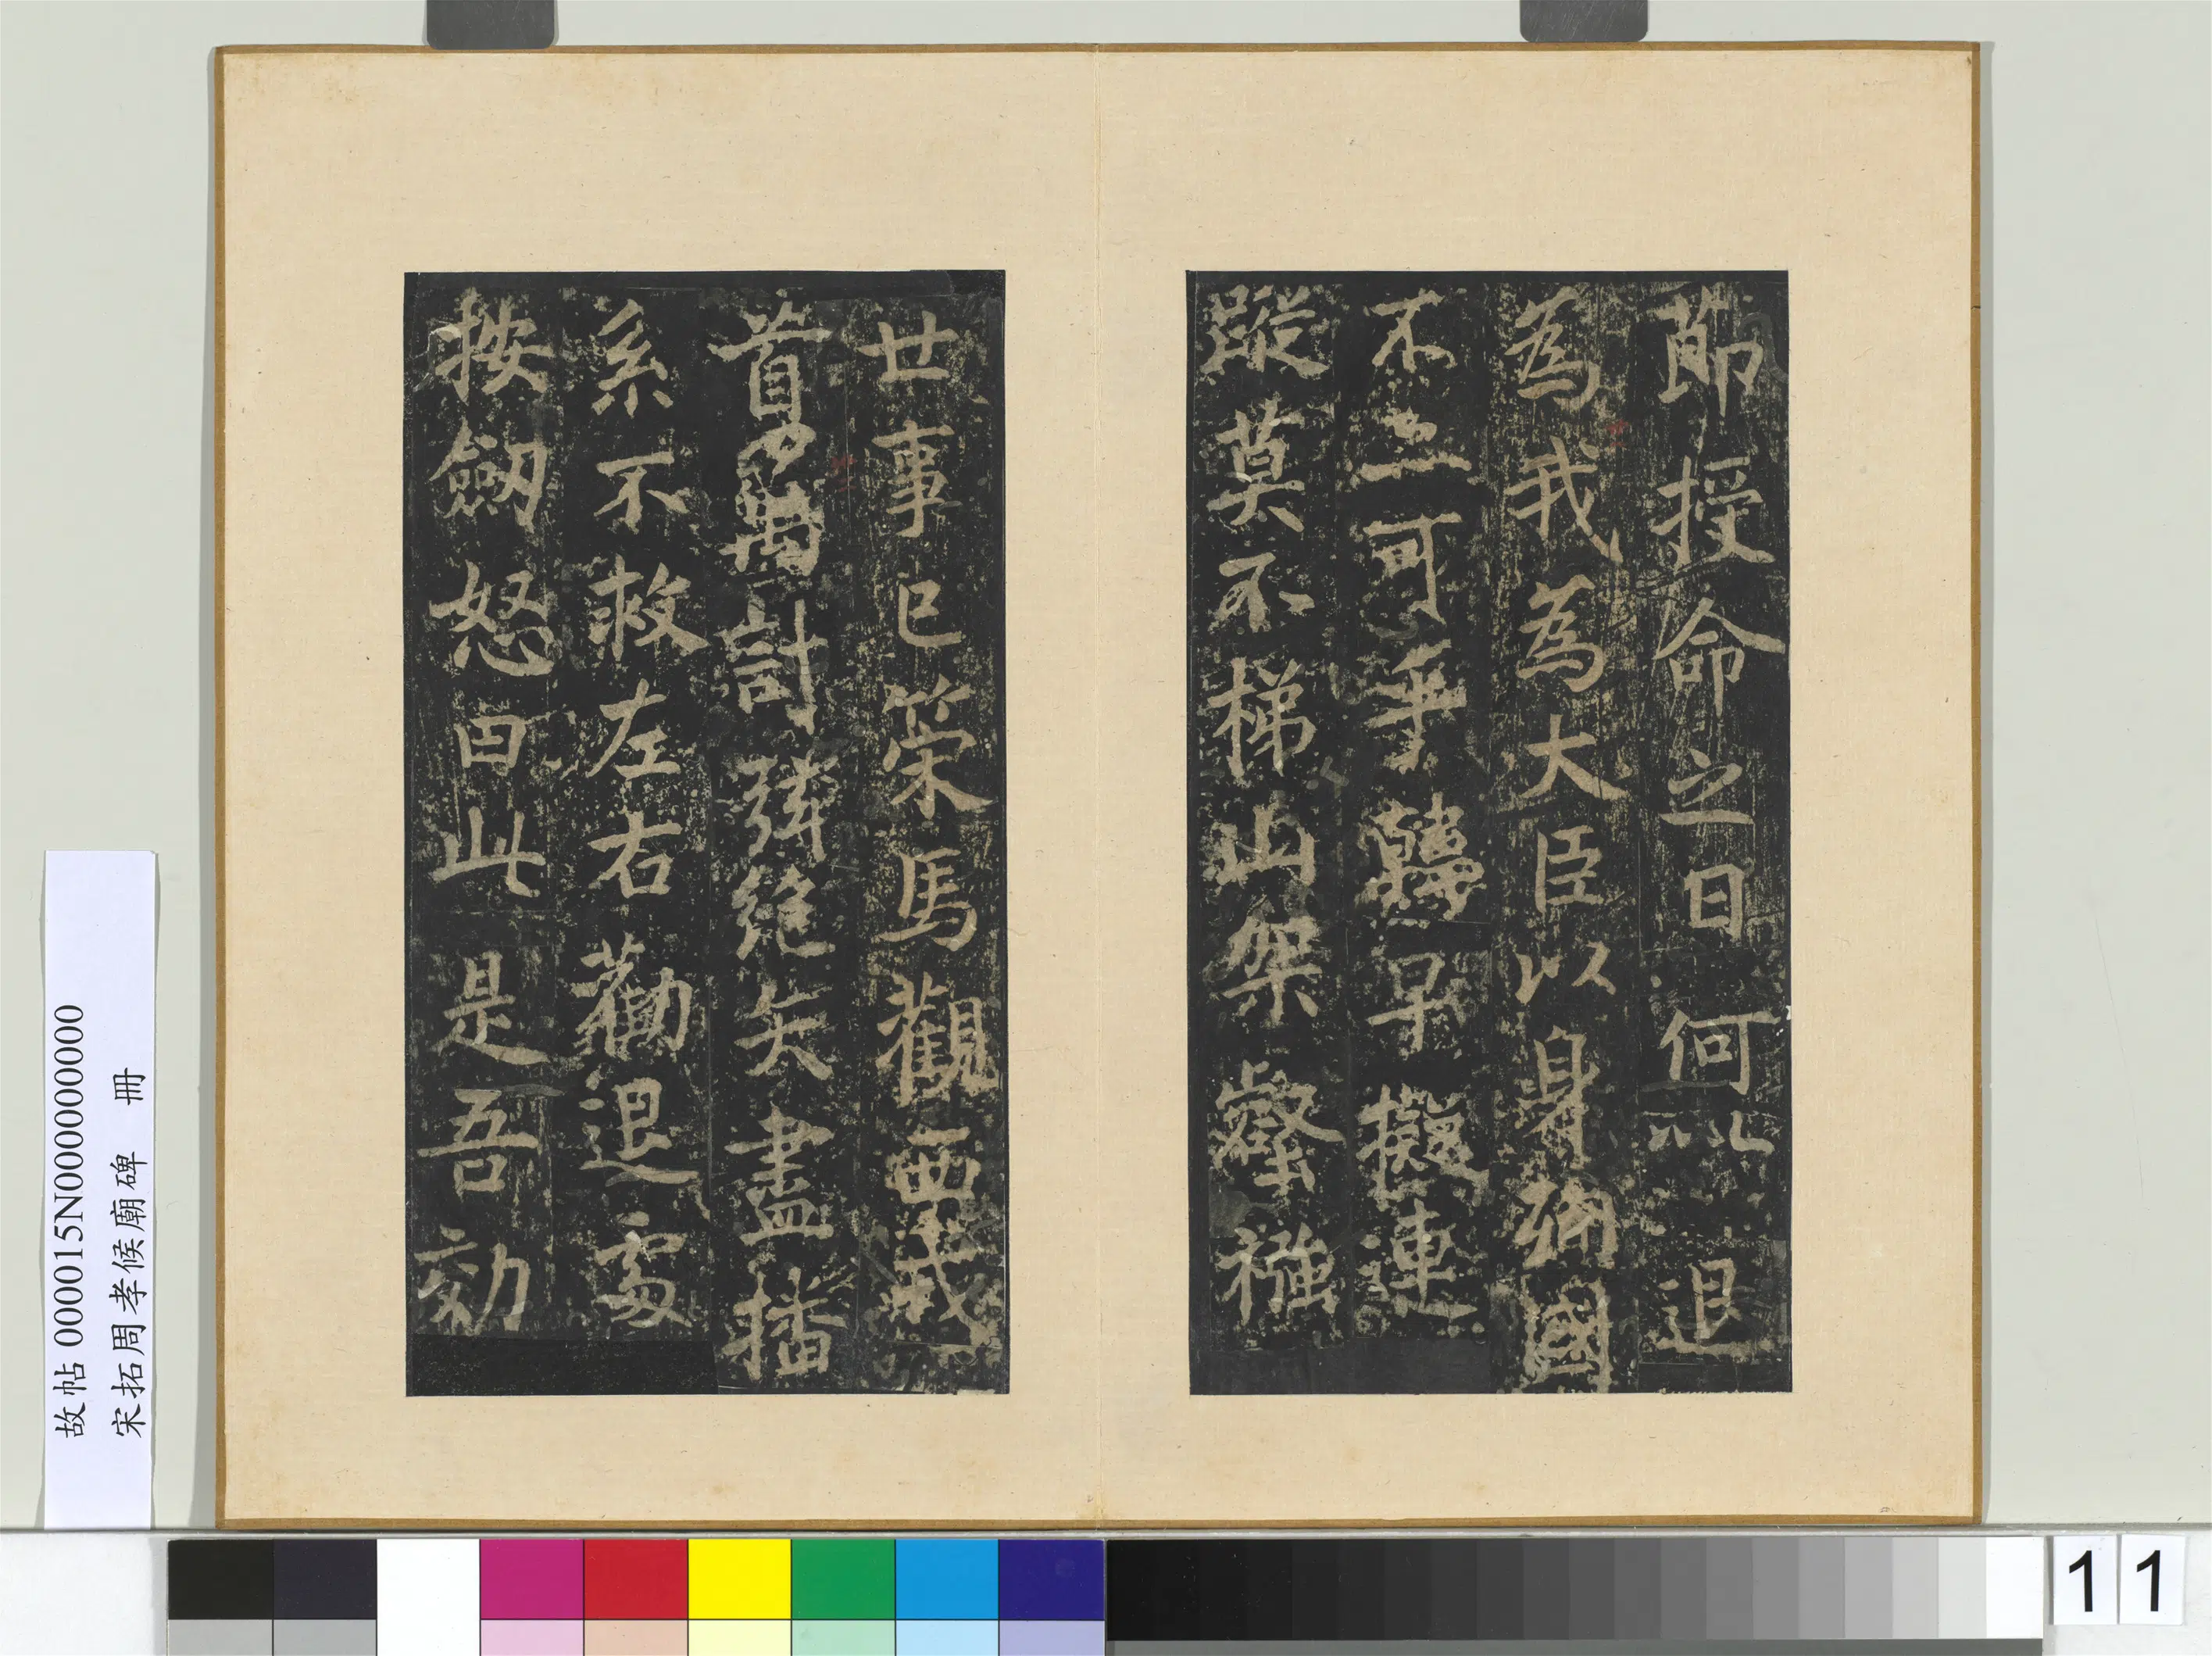 節授命之日何以退
為我為大臣以身殉國
不可乎韓早擬連
蹤莫不梯山架壑襁
廿事已策馬觀西戎
首萬計弦絕矢盡播
系不救左右勸退處
按劒怒曰此是吾効
故帖 000015N000000000
宋拓周孝候廟碑 冊
11